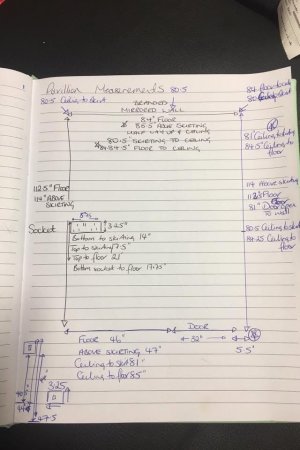 Pavillion Measurements 80.5
80.5 Ceiling to Skirt
BRANDED
MIRRORED WALL
84" FLOOR
80.5 ABOVE SKIRTING
HALF WAY UP & CEILING
80.5 SKIRTING TO CEILING
84-84.5" FLOOR TO CEILING
81 Ceiling to
84.5" Ceiling to
floor
112.5" FLOOR
114" ABOVE
SKIRTING
114 Above Skirting
Floor
81" Door open
to wall
Socket
3.25"
Bottom to skirting 14"
Top to skirting 17.5"
Top to floor 21"
Bottom socket to floor 17.75"
80.5 Ceiling to Skirt
Ceiling to
floor
DOOR
FLOOR 46"
32"
5.5"
ABOVE SKIRTING 47"
Ceiling to skirt 81"
Ceiling to floor 85"
3.25
47.5